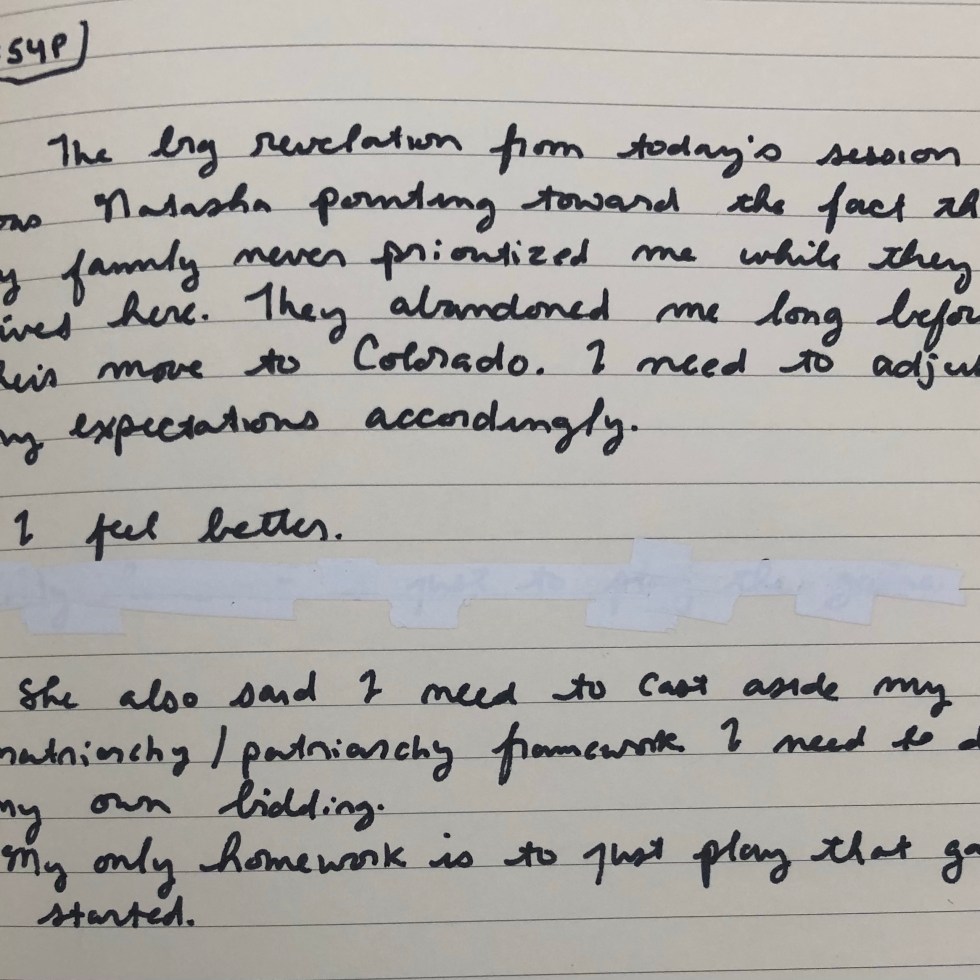 54P
The big revelation from today's session
was Natasha pointing toward the fact th
y family never prioritized me while they
ived here. They abandoned me long befor
heir move to Colorado. I need to adjus
my expectations accordingly.
I feel better.
She also said I need to cast aside my
matriarchy/patriarchy framework I need to d
my own bidding.
My only homework is to just play that ga
started.